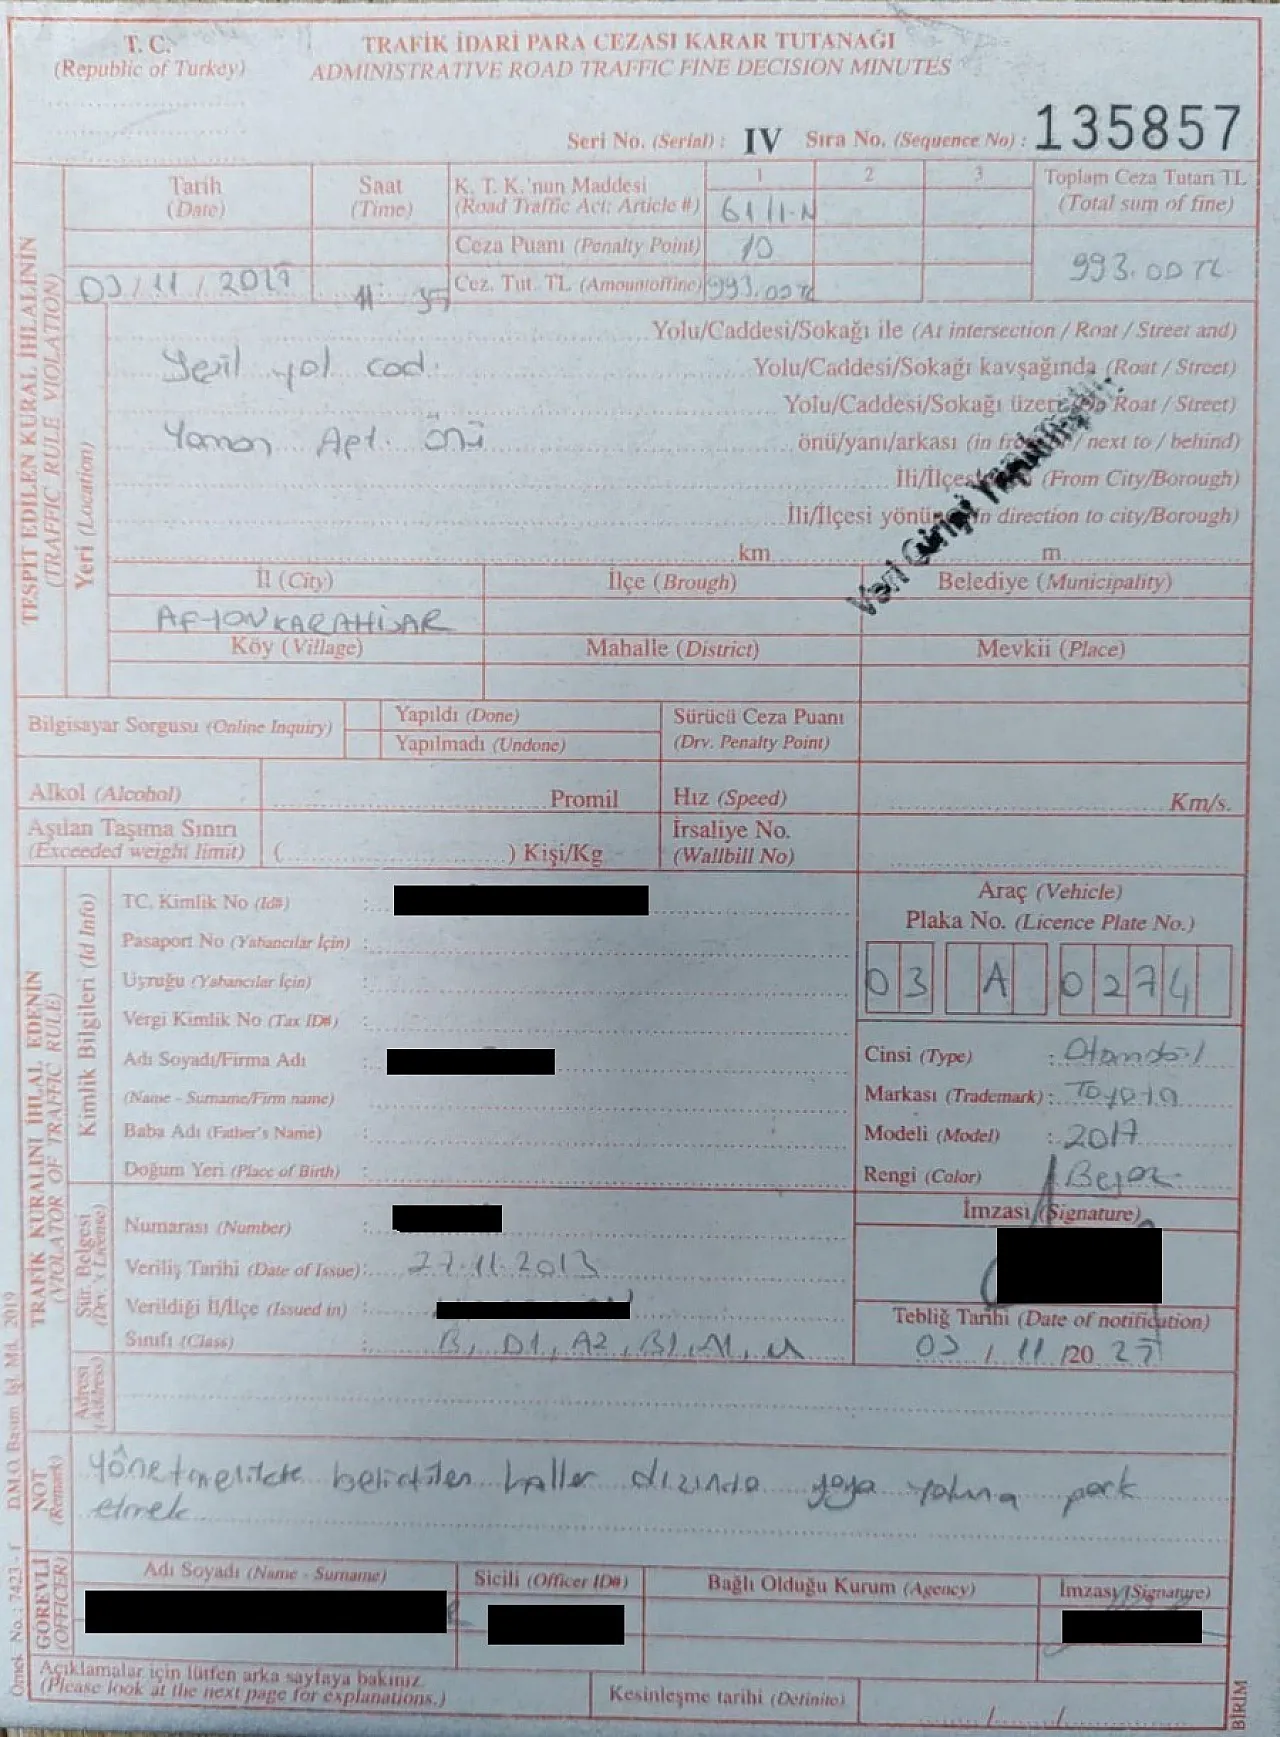 T. C.
(Republic of Turkey)
TRAFİK İDARİ PARA CEZASI KARAR TUTANAĞI
ADMINISTRATIVE ROAD TRAFFIC FINE DECISION MINUTES
Seri No. (Serial) : IV Sıra No. (Sequence No) : 135857
TESPIT EDILEN KURAL İHLALİNİN
(TRAFFIC RULE VIOLATION)
Tarih
(Date)
Saat
(Time)
K. T. K.'nun Maddesi
(Road Traffic Act; Article #)
1 2 3
61/1-N
Toplam Ceza Tutarı TL
(Total sum of fine)
Ceza Puanı (Penalty Point) 10
993.00 TL
03/11/ 11: 35
Cez. Tut. TL (Amountoffine) 993.00 TL
Yeri (Location)
Yolu/Caddesi/Sokağı ile (At intersection / Roat / Street and)
Yeşil yol cad. Yolu/Caddesi/Sokağı kavşağında (Roat / Street)
Yolu/Caddesi/Sokağı Roat / Street)
Yaman Apt. önü önü/yanı/arkası (in / next to / behind)
(From City/Borough)
İli/İlçesi in direction to city/Borough)
km m
Veri Girişi Yapılmıştır.
İl (City) İlçe (Brough) Belediye (Municipality)
AFYONKARAHİSAR
Köy (Village) Mahalle (District) Mevkii (Place)
Bilgisayar Sorgusu (Online Inquiry)
Yapıldı (Done)
Yapılmadı (Undone)
Sürücü Ceza Puanı
(Drv. Penalty Point)
Alkol (Alcohol) Promil Hız (Speed) Km/s.
Aşılan Taşıma Sınırı
(Exceeded weight limit) ( ) Kişi/Kg
İrsaliye No.
(Wallbill No)
TRAFİK KURALINI İHLAL EDENİN
(VIOLATOR OF TRAFFIC RULE)
Kimlik Bilgileri (Id Info)
TC. Kimlik No (Id#) :
Pasaport No (Yabancılar İçin) :
Uyruğu (Yabancılar İçin) :
Vergi Kimlik No (Tax ID#) :
Adı Soyadı/Firma Adı :
(Name - Surname/Firm name)
Baba Adı (Father's Name) :
Doğum Yeri (Place of Birth) :
Araç (Vehicle)
Plaka No. (Licence Plate No.)
03 A 0274
Cinsi (Type) : Otomobil
Markası (Trademark) : Toyota
Modeli (Model) : 2017
Rengi (Color) : Beyaz
Sür. Belgesi
(Drv.'s License)
Numarası (Number) :
Veriliş Tarihi (Date of Issue) : 27.11.2013
Verildiği İl/İlçe (Issued in) :
Sınıfı (Class) : B, D1, A2, B1, M,
İmzası (Signature)
Tebliğ Tarihi (Date of notification)
03 / 11 /20
Adresi
(Address)
NOT
(Remark)
Yönetmelikte belirtilen haller dışında yaya yoluna park
etmek
GÖREVLİ
(OFFICER)
Adı Soyadı (Name - Surname) Sicili (Officer ID#) Bağlı Olduğu Kurum (Agency) İmzası (Signature)
Açıklamalar için lütfen arka sayfaya bakınız.
(Please look at the next page for explanations.)
Kesinleşme tarihi (Definite) / /
BİRİM
Örnek No.: 7423 - f D.M.O. Basım İşl. Md. 2019